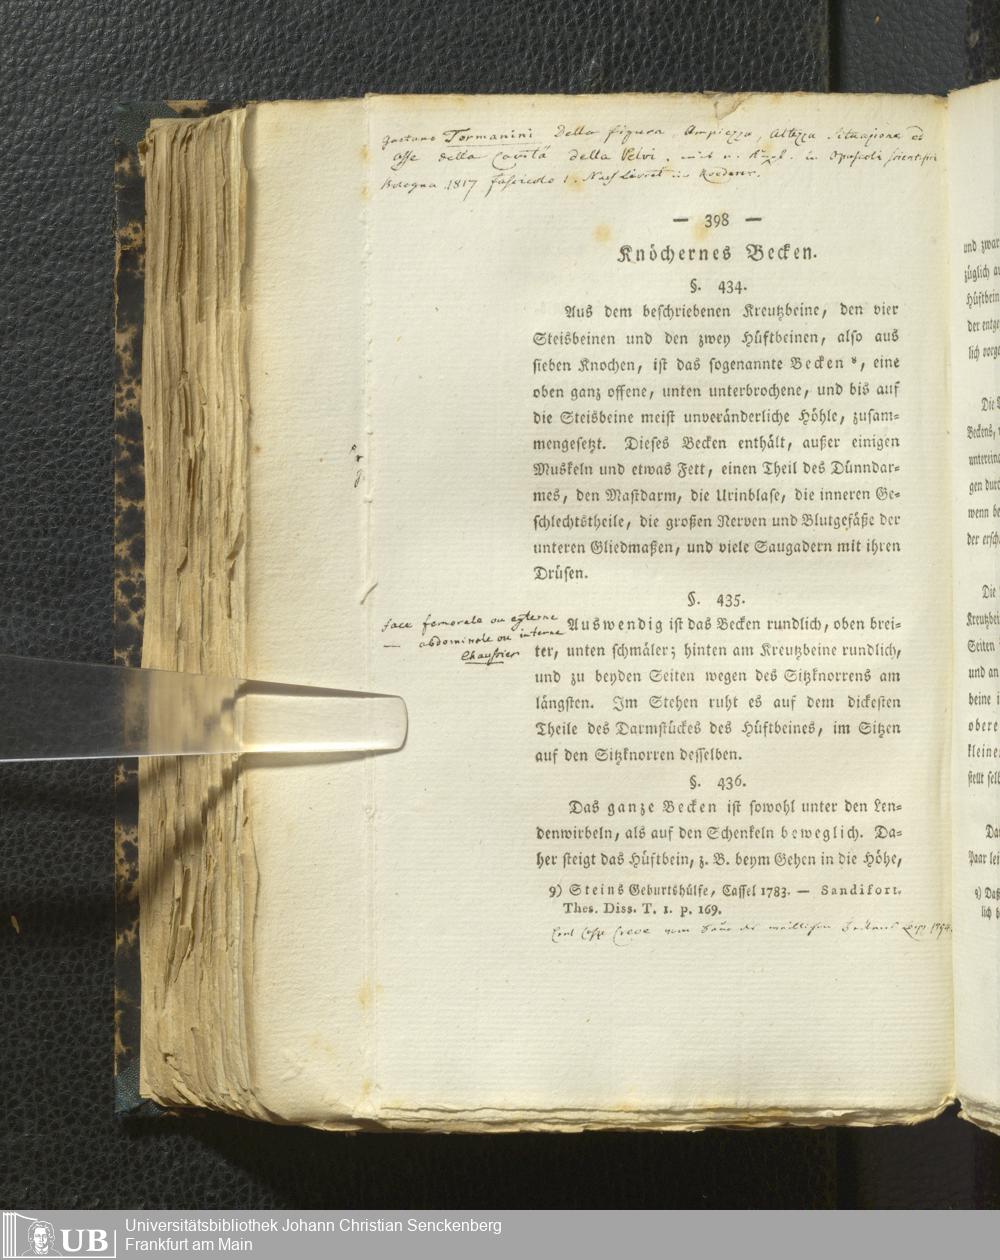 Gaetano Tormanini Della figura, Ampiezza, Altezza Situazione ed
Asse della Cavità della Pelvi. mit in Opuscoli scientifici
Bologna 1817 fascicolo 1. Nach Levret Roederer.
— 398 —
Knöchernes Becken.
§. 434.
Aus dem beſchriebenen Kreutzbeine, den vier
Steisbeinen und den zwey Hüftbeinen, alſo aus
ſieben Knochen, iſt das ſogenannte Becken ⁹, eine
oben ganz offene, unten unterbrochene, und bis auf
die Steisbeine meiſt unveränderliche Höhle, zuſam-
mengeſetzt. Dieſes Becken enthält, außer einigen
Muskeln und etwas Fett, einen Theil des Dünndar-
mes, den Maſtdarm, die Urinblaſe, die inneren Ge-
ſchlechtstheile, die großen Nerven und Blutgefäße der
unteren Gliedmaßen, und viele Saugadern mit ihren
Drüſen.
§. 435.
face femorale ou externe
— abdominale ou interne
Chaussier
Auswendig iſt das Becken rundlich, oben brei-
ter, unten ſchmäler; hinten am Kreutzbeine rundlich,
und zu beyden Seiten wegen des Sitzknorrens am
längſten. Im Stehen ruht es auf dem dickeſten
Theile des Darmſtückes des Hüftbeines, im Sitzen
auf den Sitzknorren deſſelben.
§. 436.
Das ganze Becken iſt ſowohl unter den Len-
denwirbeln, als auf den Schenkeln beweglich. Da-
her ſteigt das Hüftbein, z. B. beym Gehen in die Höhe,
9) Steins Geburtshülfe, Caſſel 1783. — Sandifort.
Thes. Diss. T. 1. p. 169.
Carl Casp Creve vom Bau des weiblichen Beckens Leipz 1794.
Universitätsbibliothek Johann Christian Senckenberg
Frankfurt am Main
UB